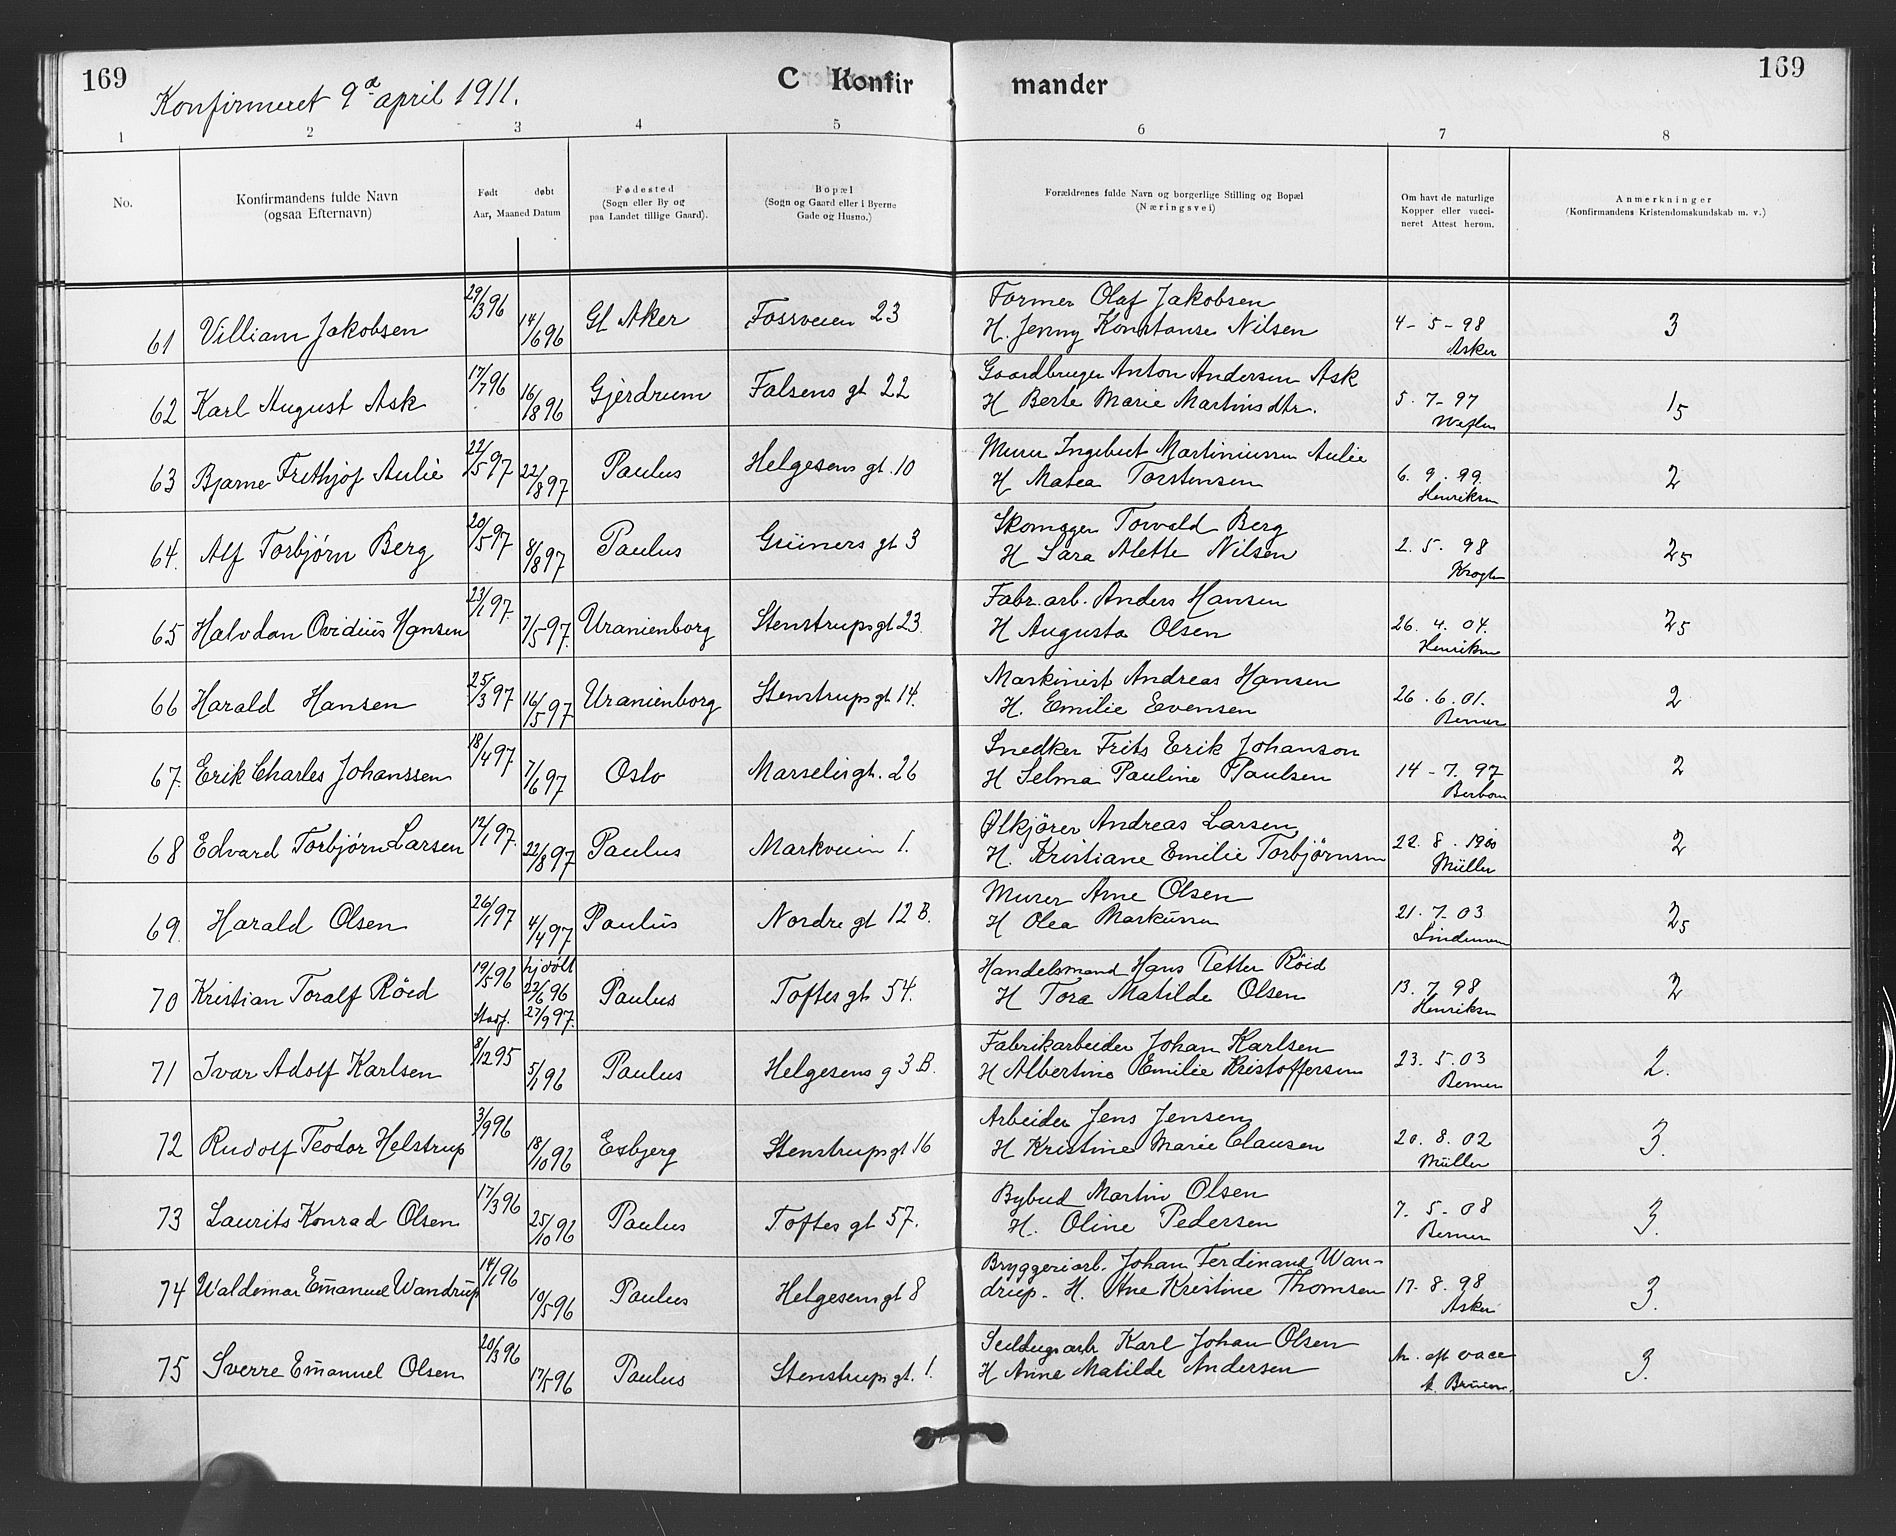 169
C Konfir mander
169
Konfirmeret 9d april 1911.
1 2 3 4 5 6 7 8
No.
Konfirmandens fulde Navn
(ogsaa Efternavn)
Født døbt
Aar, Maaned Datum
Fødested
(Sogn eller By og
paa Landet tillige Gaard).
Bopæl
(Sogn og Gaard eller i Byerne
Gade og Husno.)
Forældrenes fulde Navn og borgerlige Stilling og Bopæl
(Næringsvei)
Om havt de naturlige
Kopper eller vacci-
neret Attest herom.
Anmerkninger
(Konfirmandens Kristendomskundskab m. v.)
61 Villiam Jakobsen 29/3 96 14/6 96 Gl Aker Fossveien 23 Former Olaf Jakobsen
H. Jenny Konstanse Nilsen 4-5-98 3
Asker
62 Karl August Ask 17/7 96 16/8 96 Gjerdrum Falsens gt 22 Gaardbruger Anton Andersen Ask
H Berte Marie Martinsdtr. 5.7-97 15
63 Bjarne Frithjof Aulie 22/5 97 22/8 97 Paulus Helgesens gt. 10 Murer Ingebret Martiniussen Aulie
H Matea Torstensen 6.9.99. 2
Henriksen
64. Alf Torbjørn Berg 20/5 97 8/8 97 Paulus Grüners gt 3 Skomager Torvald Berg
H Sara Alette Nilsen 2.5.98 25
Krogh
65 Halvdan Ovidius Hansen 23/1 97. 7/5-97. Uranienborg Stenstrups gt 23. Fabr.arb. Anders Hansen
H Augusta Olsen 26.4.04. 25
Henriksen
66 Harald Hansen 25/3 97 16/5 97 Uranienborg Stenstrups gt 14. Maskinist Andreas Hansen
H. Emilie Evensen 26.6.01. 2
Berner
67. Erik Charles Johanssen 18/4 97 7/6 97 Oslo Marselisgt. 26 Snedker Frits Erik Johanson
H Selma Pauline Paulsen 14-7.97 2
68 Edvard Torbjørn Larsen 12/1 97. 22/8 97 Paulus Markveien 1. Ølkjører Andreas Larsen
H. Kristiane Emilie Torbjørnsen 22.8.1900 2
Müller
69. Harald Olsen 26/1 97 4/4 97 Paulus Nordre gt 12 B. Murer Arne Olsen
H Olea Markussen 21.7-03 25
Lindeman
70 Kristian Toralf Röed 19/5 96 hjdøbt 22/6 96 Paulus Toftes gt 54. Handelsmand Hans Petter Röed
Stadf. 27/9 97. H Tora Matilde Olsen 13.7.98 2
Henriksen
71 Ivar Adolf Karlsen 8/12 95 5/1 96 Paulus Helgesens g 3 B. Fabrikarbeider Johan Karlsen
H Albertine Emilie Kristoffersen 23.5.03 2.
Berner
72 Rudolf Teodor Helstrup 3/9 96 18/10 96 Esbjerg Stenstrups gt 16 Arbeider Jens Jensen
H Kristine Marie Clausen 20.8.02 3.
Müller
73 Laurits Konrad Olsen 17/3 96 25/10 96 Paulus Toftes gt 57. Bybud Martin Olsen
H. Oline Pedersen 7.5-08 3.
Berner
74 Waldemar Emanuel Wandrup 14/1 96 10/5 96 Paulus Helgesensgt 8 Bryggeriarb. Johan Ferdinand Wan-
drup. H. Ane Kristine Thomsen 17.8.98 3.
Asker
75 Sverre Emanuel Olsen 20/3 96 17/5 96 Paulus Stenstrups gt. 1. Karl Johan Olsen
H Anne Matilde Andersen 3.